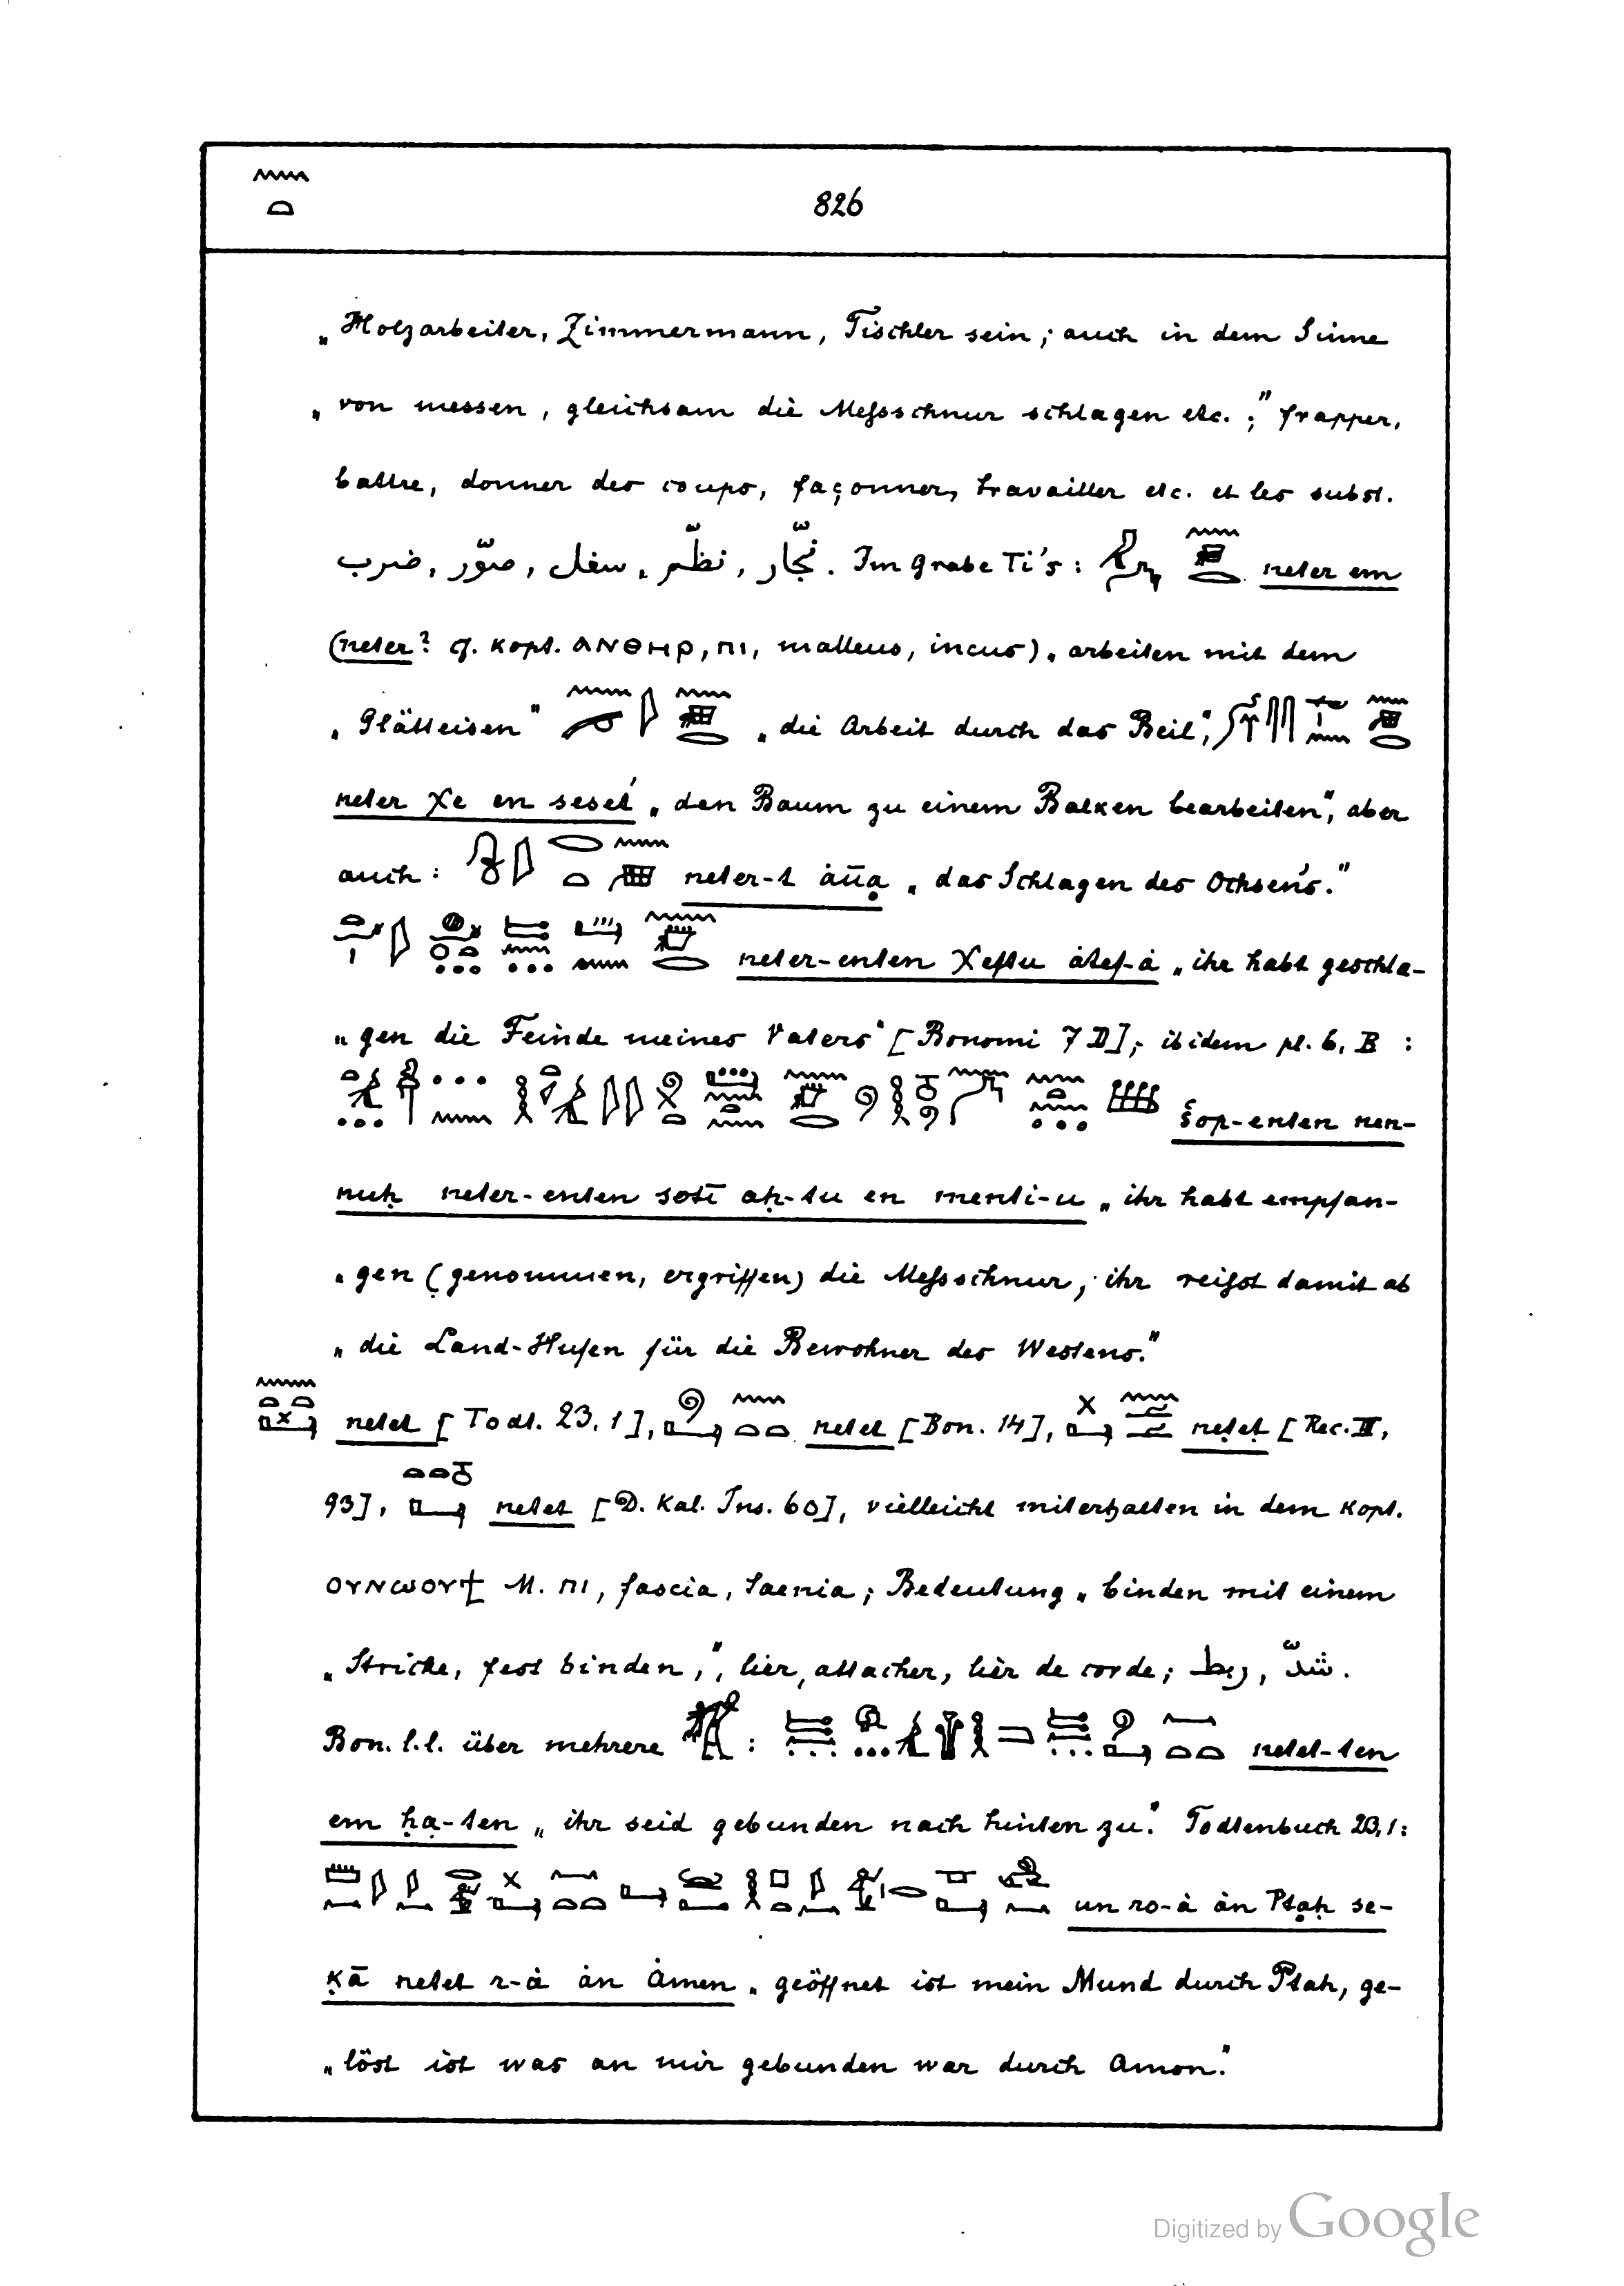 826
„Holzarbeiter, Zimmermann, Tischler sein; auch in dem Sinne
„von messen, gleichsam die Meſsschnur schlagen etc.;" frapper,
battre, donner des coups, façonner, travailler etc. et les subst.
ضرب, صوّر, سفل, نظّم, نجّار. Im Grabe Ti's: neter em
(neter? cf. Kopt. ⲁⲛⲑⲏⲣ, ⲡⲓ, malleus, incus) „arbeiten mit dem
„Glätteisen" „die Arbeit durch das Beil",
neter χe en seset „den Baum zu einem Balken bearbeiten", aber
auch: neter-t āua̤ „das Schlagen des Ochsens."
neter-enten χeftu átef-á „ihr habt geschla-
„gen die Feinde meines Vaters" [Bonomi 7 D]; ibidem pl. 6, B :
šop-enten nen-
nuḥ neter-enten sotī aḥ-tu en menti-u „ihr habt empfan-
„gen (genommen, ergriffen) die Meſsschnur, ihr reiſst damit ab
„die Land-Hufen für die Bewohner des Westens."
netet [Todt. 23, 1], netet [Bon. 14], neṭeṭ [Rec. III,
93], netet [D. Kal. Ins. 60], vielleicht miterhalten in dem Kopt.
ⲟⲩⲛⲱⲟⲩϯ M. ⲡⲓ, fascia, taenia; Bedeutung „binden mit einem
„Stricke, fest binden,", lier, attacher, lier de corde; ربط, شدّ.
Bon. l.l. über mehrere : netet-ten
em ḥa̤-ten „ihr seid gebunden nach hinten zu." Todtenbuch 23, 1:
un ro-á án Ptaḥ se-
ḳā netet r-á án Ámen „geöffnet ist mein Mund durch Ptah, ge-
„löst ist was an mir gebunden war durch Amon."
Digitized by Google